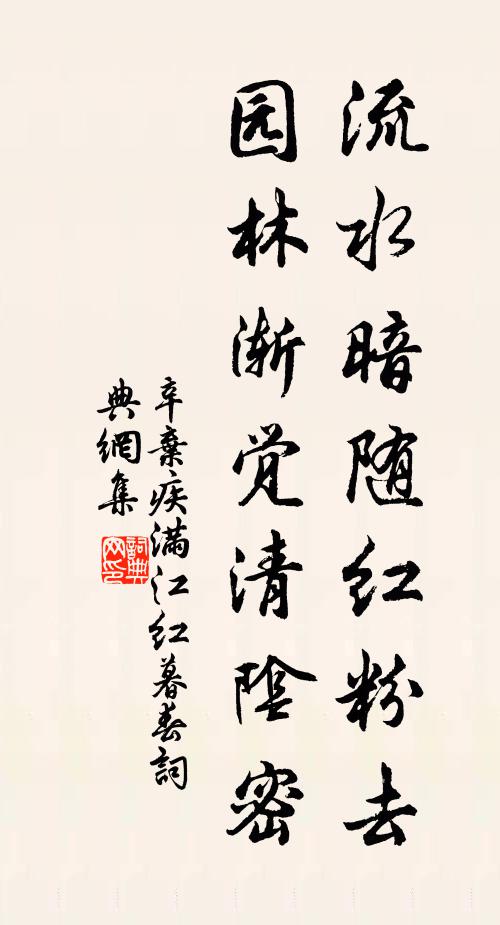 流水暗随红粉去
园林渐觉清陰密
辛棄疾满江红暮春詞
典網集
詞典网印